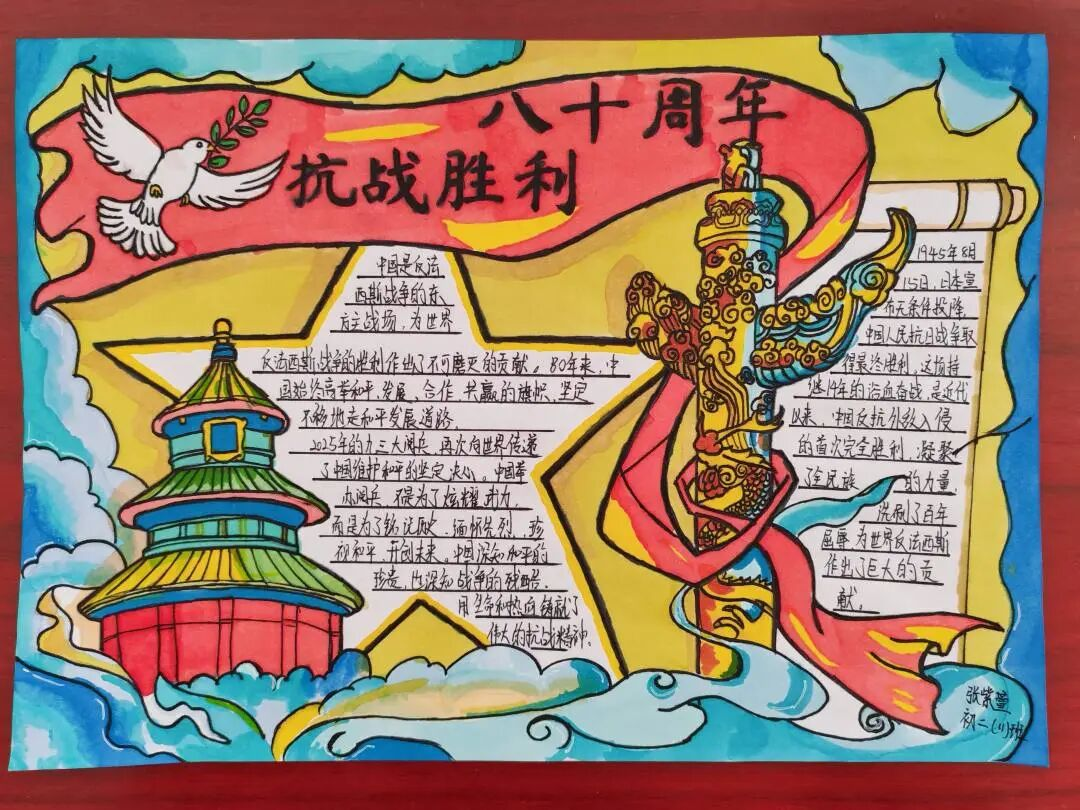 八十周年
抗战胜利
中国是反法
西斯战争的东
方主战场,为世界
反法西斯战争的胜利作出了不可磨灭的贡献。80年来,中
国始终高举和平、发展、合作、共赢的旗帜,坚定
不移地走和平发展道路
2025年的九三大阅兵,再次向世界传递
了中国维护和平的坚定决心。中国举
办阅兵,不是为了炫耀武力,
而是为了铭记历史,缅怀先烈,珍
视和平,开创未来。中国深知和平的
珍贵,也深知战争的残酷.
用生命和热血铸就了
伟大的抗战精神.
1945年8月
15日,日本宣
布无条件投降,
中国人民抗日战争取
得最终胜利,这场持
继14年的浴血奋战,是近代
以来,中国反抗外敌入侵
的首次完全胜利,凝聚
了全民族的力量,
洗刷了百年
屈辱为世界反法西斯
作出了巨大的贡
献。
张紫萱
初二(11)班